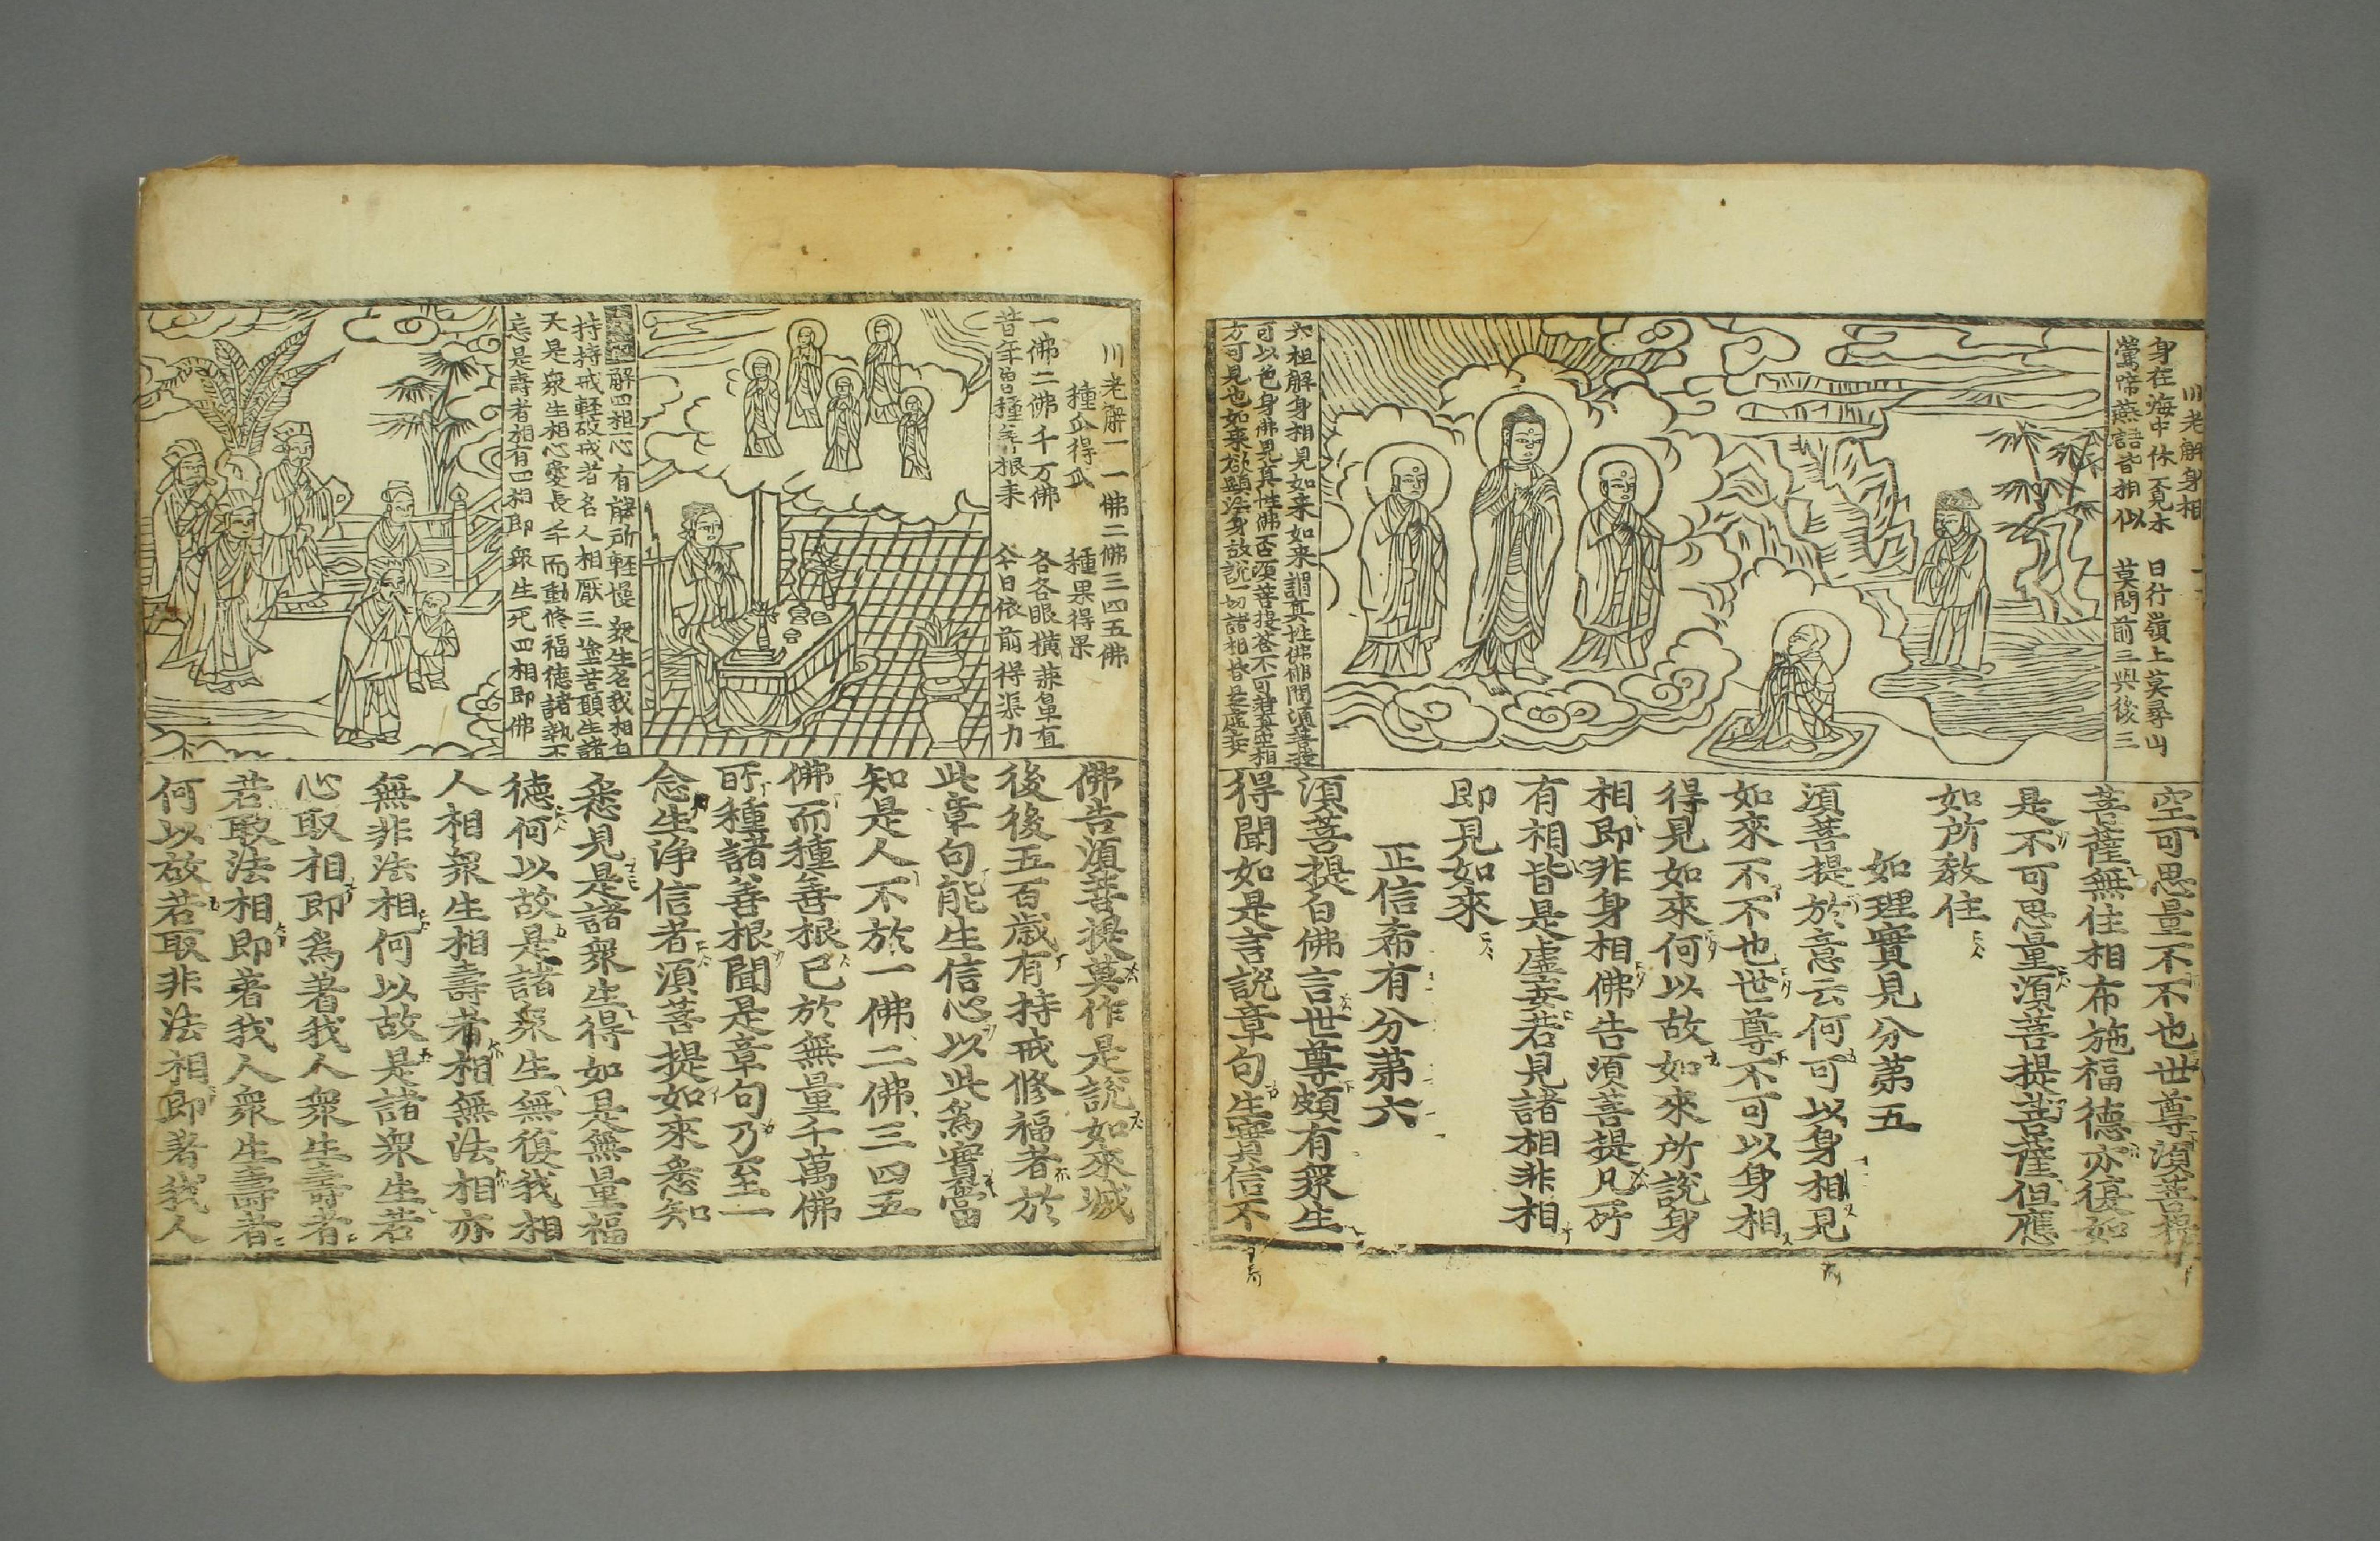 川老解身相
身在海中休覓水　日行嶺上莫尋山
鶯啼燕語皆相似　莫問前三與後三
六祖解身相見如来如来謂真性佛佛問須菩提
可以色身佛見真性佛否須菩提荅不可着真空相
方可見也如来欲顯法身故說一切諸相皆是虛妄
空可思量不不也世尊湏菩提
菩薩無住相布施福德亦復如
是不可思量湏菩提菩薩但應
如所教住
如理實見分第五
湏菩提於意云何可以身相見
如來不不也世尊不可以身相
得見如來何以故如來所說身
相即非身相佛告湏菩提凡所
有相皆是虛妄若見諸相非相
即見如來
正信希有分第六
湏菩提白佛言世尊頗有衆生
得聞如是言說章句生實信不
川老解一　一佛二佛三四五佛
種瓜得瓜　種果得果
一佛二佛千万佛　各各眼橫兼鼻直
昔年曾種善根来　今日依前得渠力
解四相心有能所輕慢衆生名我相自
持持戒輕破戒者名人相厭三塗苦願生諸
天是衆生相心愛長年而勤修福德諸執不
忘是壽者相有四相即衆生死四相即佛
佛告湏菩提莫作是說如來滅
後後五百歲有持戒修福者於
此章句能生信心以此爲實當
知是人不於一佛二佛三四五
佛而種善根已於無量千萬佛
所種諸善根聞是章句乃至一
念生淨信者湏菩提如來悉知
悉見是諸衆生得如是無量福
德何以故是諸衆生無復我相
人相衆生相壽者相無法相亦
無非法相何以故是諸衆生若
心取相即爲著我人衆生壽者
若取法相即著我人衆生壽者
何以故若取非法相即著我人